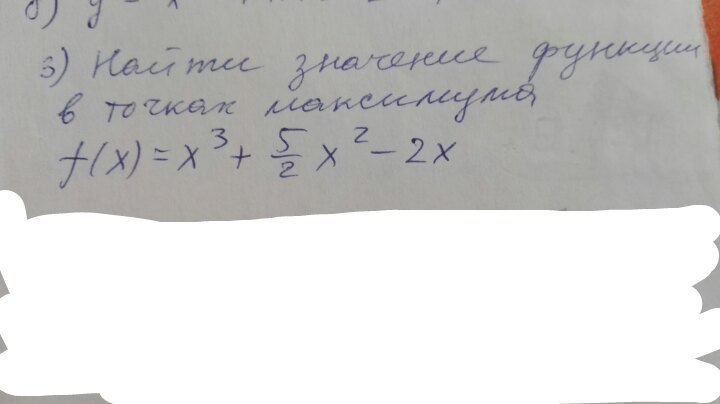 б) y =
3) Найти значение функции
в точках максимума
f(x) = x³ + 5/2 x² - 2x